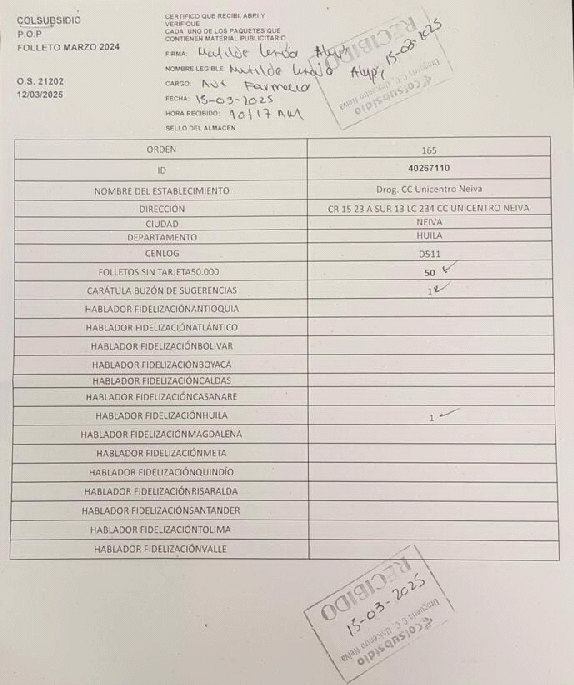 COLSUBSIDIO
P.O.P
FOLLETO MARZO 2024
O.S. 21202
12/03/2025
CERTIFICO QUE RECIBI, ABRI Y
VERIFIQUE
CADA UNO DE LOS PAQUETES QUE
CONTIENEN MATERIAL PUBLICITARIO
FIRMA: Matilde
NOMBRE LEGIBLE: Matilde
CARGO: Aux Farmacia
FECHA: 15-03-2025
HORA RECIBIDO: 10/17 AM
SELLO DEL ALMACEN
RECIBIDO
15-03-2025
Colsubsidio
ORDEN 165
ID 40267110
NOMBRE DEL ESTABLECIMIENTO Drog. CC Unicentro Neiva
DIRECCION CR 15 23 A SUR 13 LC 234 CC UNICENTRO NEIVA
CIUDAD NEIVA
DEPARTAMENTO HUILA
CENLOG D511
FOLLETOS SIN TARJETA50.000 50
CARÁTULA BUZÓN DE SUGERENCIAS 1
HABLADOR FIDELIZACIÓNANTIOQUIA
HABLADOR FIDELIZACIÓNATLÁNTICO
HABLADOR FIDELIZACIÓNBOLIVAR
HABLADOR FIDELIZACIÓNBOYACÁ
HABLADOR FIDELIZACIÓNCALDAS
HABLADOR FIDELIZACIÓNCASANARE
HABLADOR FIDELIZACIÓNHUILA 1
HABLADOR FIDELIZACIÓNMAGDALENA
HABLADOR FIDELIZACIÓNMETA
HABLADOR FIDELIZACIÓNQUINDÍO
HABLADOR FIDELIZACIÓNRISARALDA
HABLADOR FIDELIZACIÓNSANTANDER
HABLADOR FIDELIZACIÓNTOLIMA
HABLADOR FIDELIZACIÓNVALLE
RECIBIDO
15-03-2025
Colsubsidio